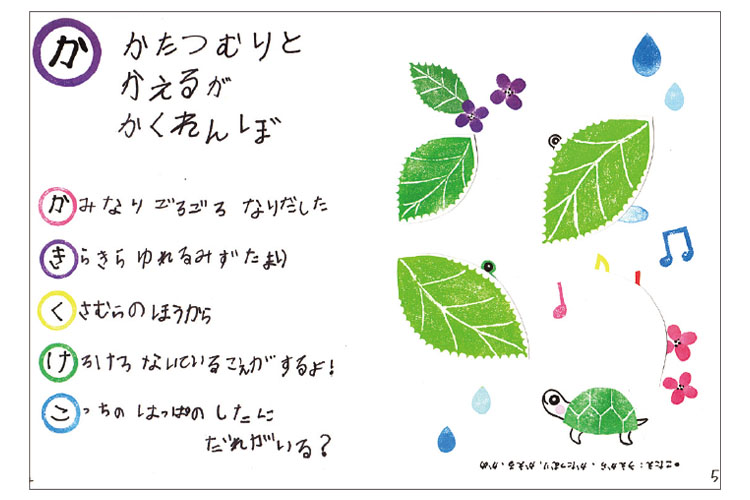 か
かたつむりと
かえるが
かくれんぼ
かみなり ごろごろ なりだした
きらきら ゆれるみずたまり
くさむらのほうから
けろけろ ないているこえがするよ!
こっちの はっぱの したに
だれがいる?
●こたえ：うえから、かたつむり、かえる、かめ
5